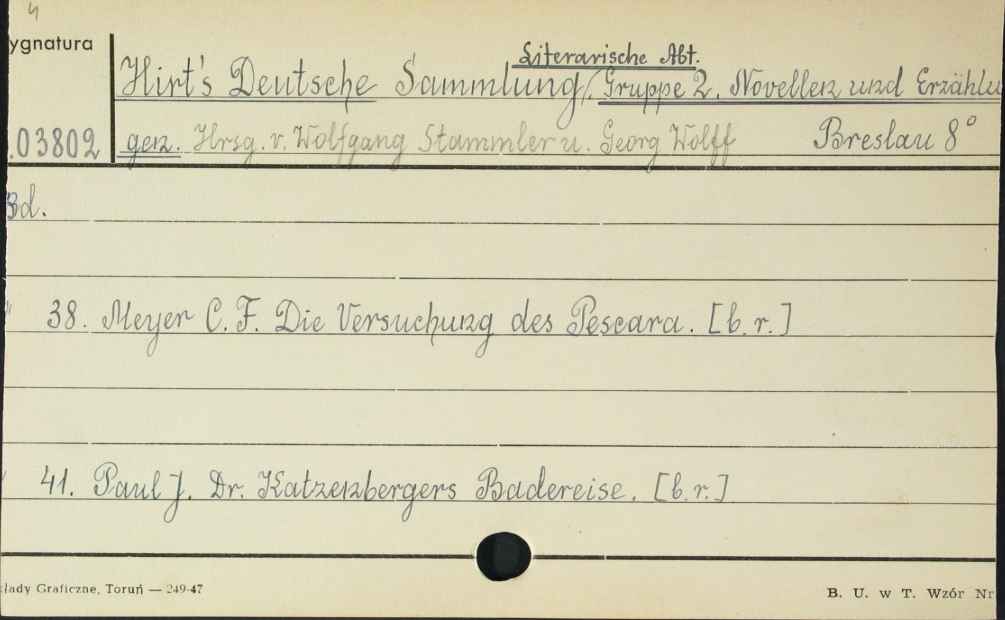 4
ygnatura
Literarische Abt.
Hirt's Deutsche Sammlung, Gruppe 2. Novellen und Erzählu
.03802 gen. Hrsg. v. Wolfgang Stammler u. Georg Wolff Breslau 8°
Bd.
" 38. Meyer C. F. Die Versuchung des Pescara. [b. r.]
41. Paul J. Dr. Katzenbergers Badereise. [b. r.]
kłady Graficzne, Toruń — 249-47
B. U. w T. Wzór Nr